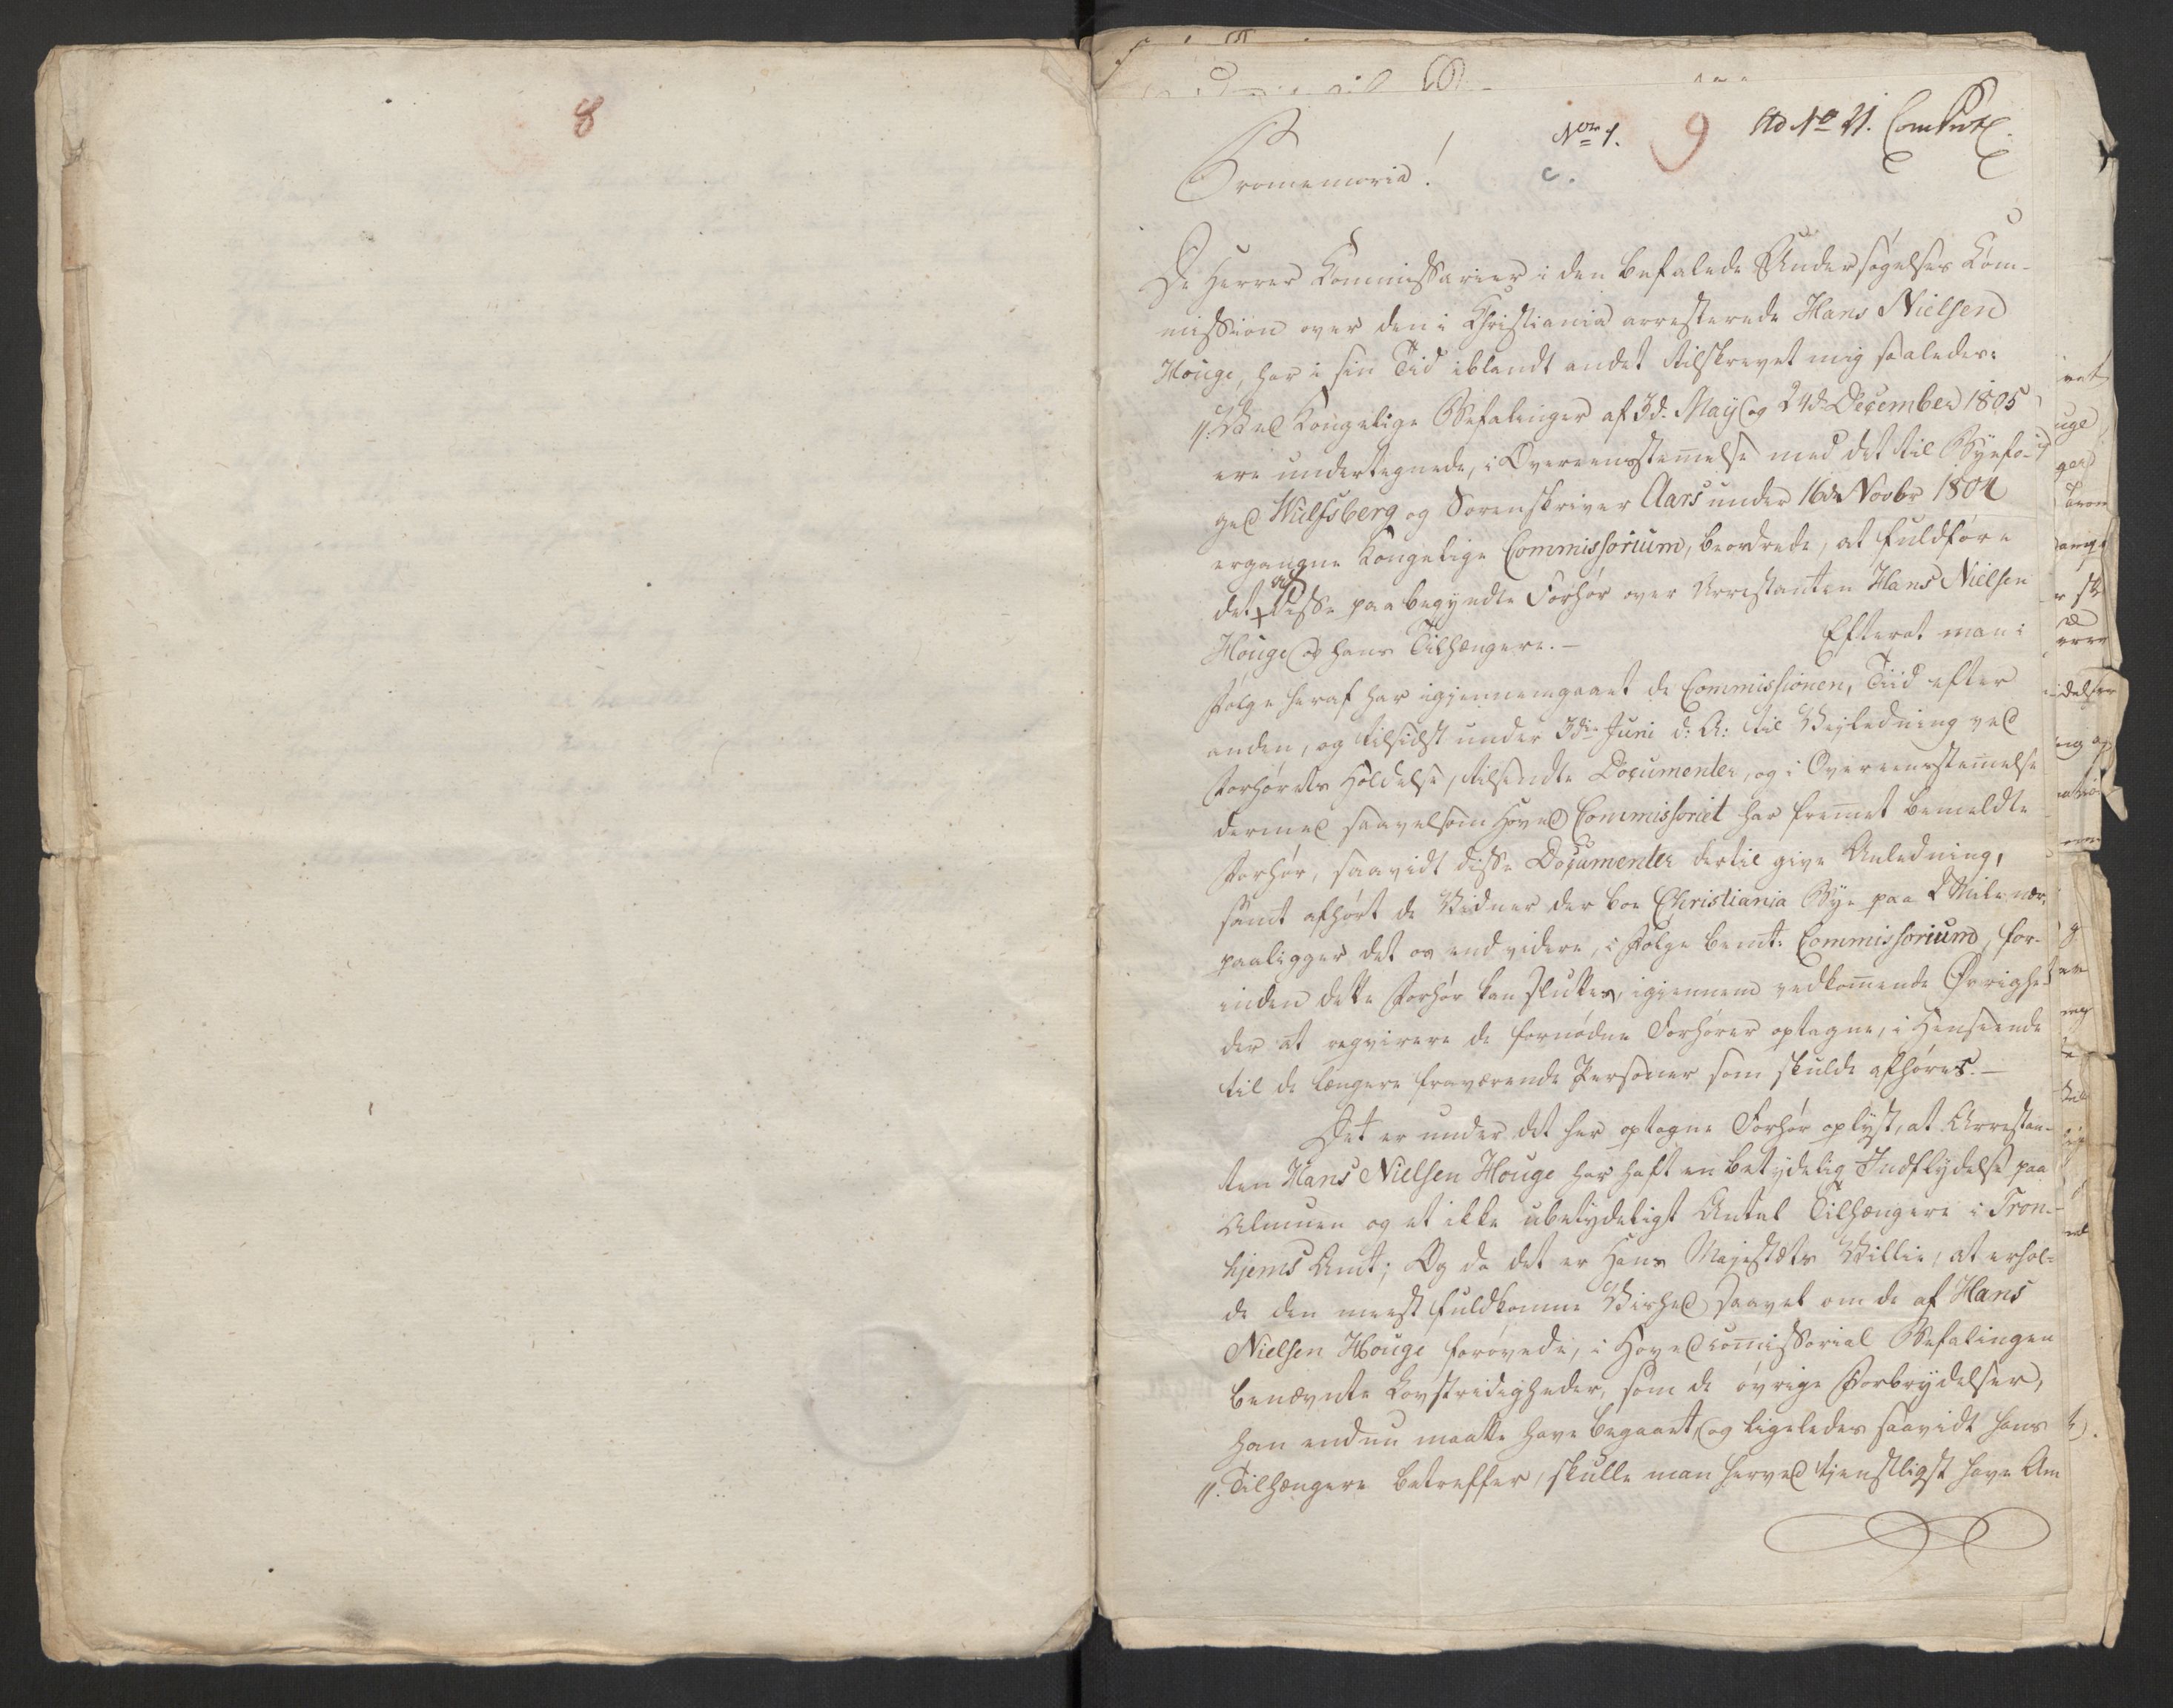 8
No 1. 9 Ad No 21. Com Prot.
Promemoria! c.
De Herrer Kommissarier i den befalede Undersøgelses Kom-
mission over den i Christiania arresterede Hans Nielsen
Houge, har i sin Tid iblandt andet tilskrevet mig saaledes:
"Ved Kongelige Befalinger af 3d. May og 24d December 1805
ere undertegnede, i Overeensstemelse med det til Byefo-
ged Wulfsberg og Sorenskriver Aars under 16de Novbr 1804
ergangne Kongelige Commissorium, beordrede, at fuldføre
det af disse paabegyndte Forhør over Arrestanten Hans Nielsen
Houge og hans Tilhængere. — Efterat man i
Følge heraf har igjennemgaaet de Commissionen, Tiid efter
anden, og tilsidst under 3die Juni d: A: til Vejledning ved
Forhørets Holdelse, tilsendte Documenter, og i Overeensstemelse
dermed saavelsom Hoved Commissoriet har fremet bemeldte
Forhør, saavidt disse Documenter dertil give Anledning,
samt afhørt de Vidner der boe Christiania Bye paa 2 Mile nær,
paaligger det os end videre, i Følge bemte Commissorium, for-
inden dette Forhør kan sluttes, igiennem vedkomende Øvrighe-
der at reqvirere de fornødne Forhører optagne, i Henseende
til de længere fraværende Personer som skulde afhøres. —
Det er under det her optagne Forhør oplyst, at Arrestan-
ten Hans Nielsen Houge har haft en betydelig Indflydelse paa
Almuen og et ikke ubetydeligt Antal Tilhængere i Tron-
hjems Amt; Og da det er Hans Majestæts Villie, at erhol-
de den meest fuldkomne Vished saavel om de af Hans
Nielsen Houge forøvede, i Hovedcomissorial Befalingen
benævnte Lovstridigheder, som de øvrige Forbrydelser,
han endnu maatte have begaaet, og ligeledes saavidt hans
"Tilhængere betreffer, skulle man herved tjenstligst have Am